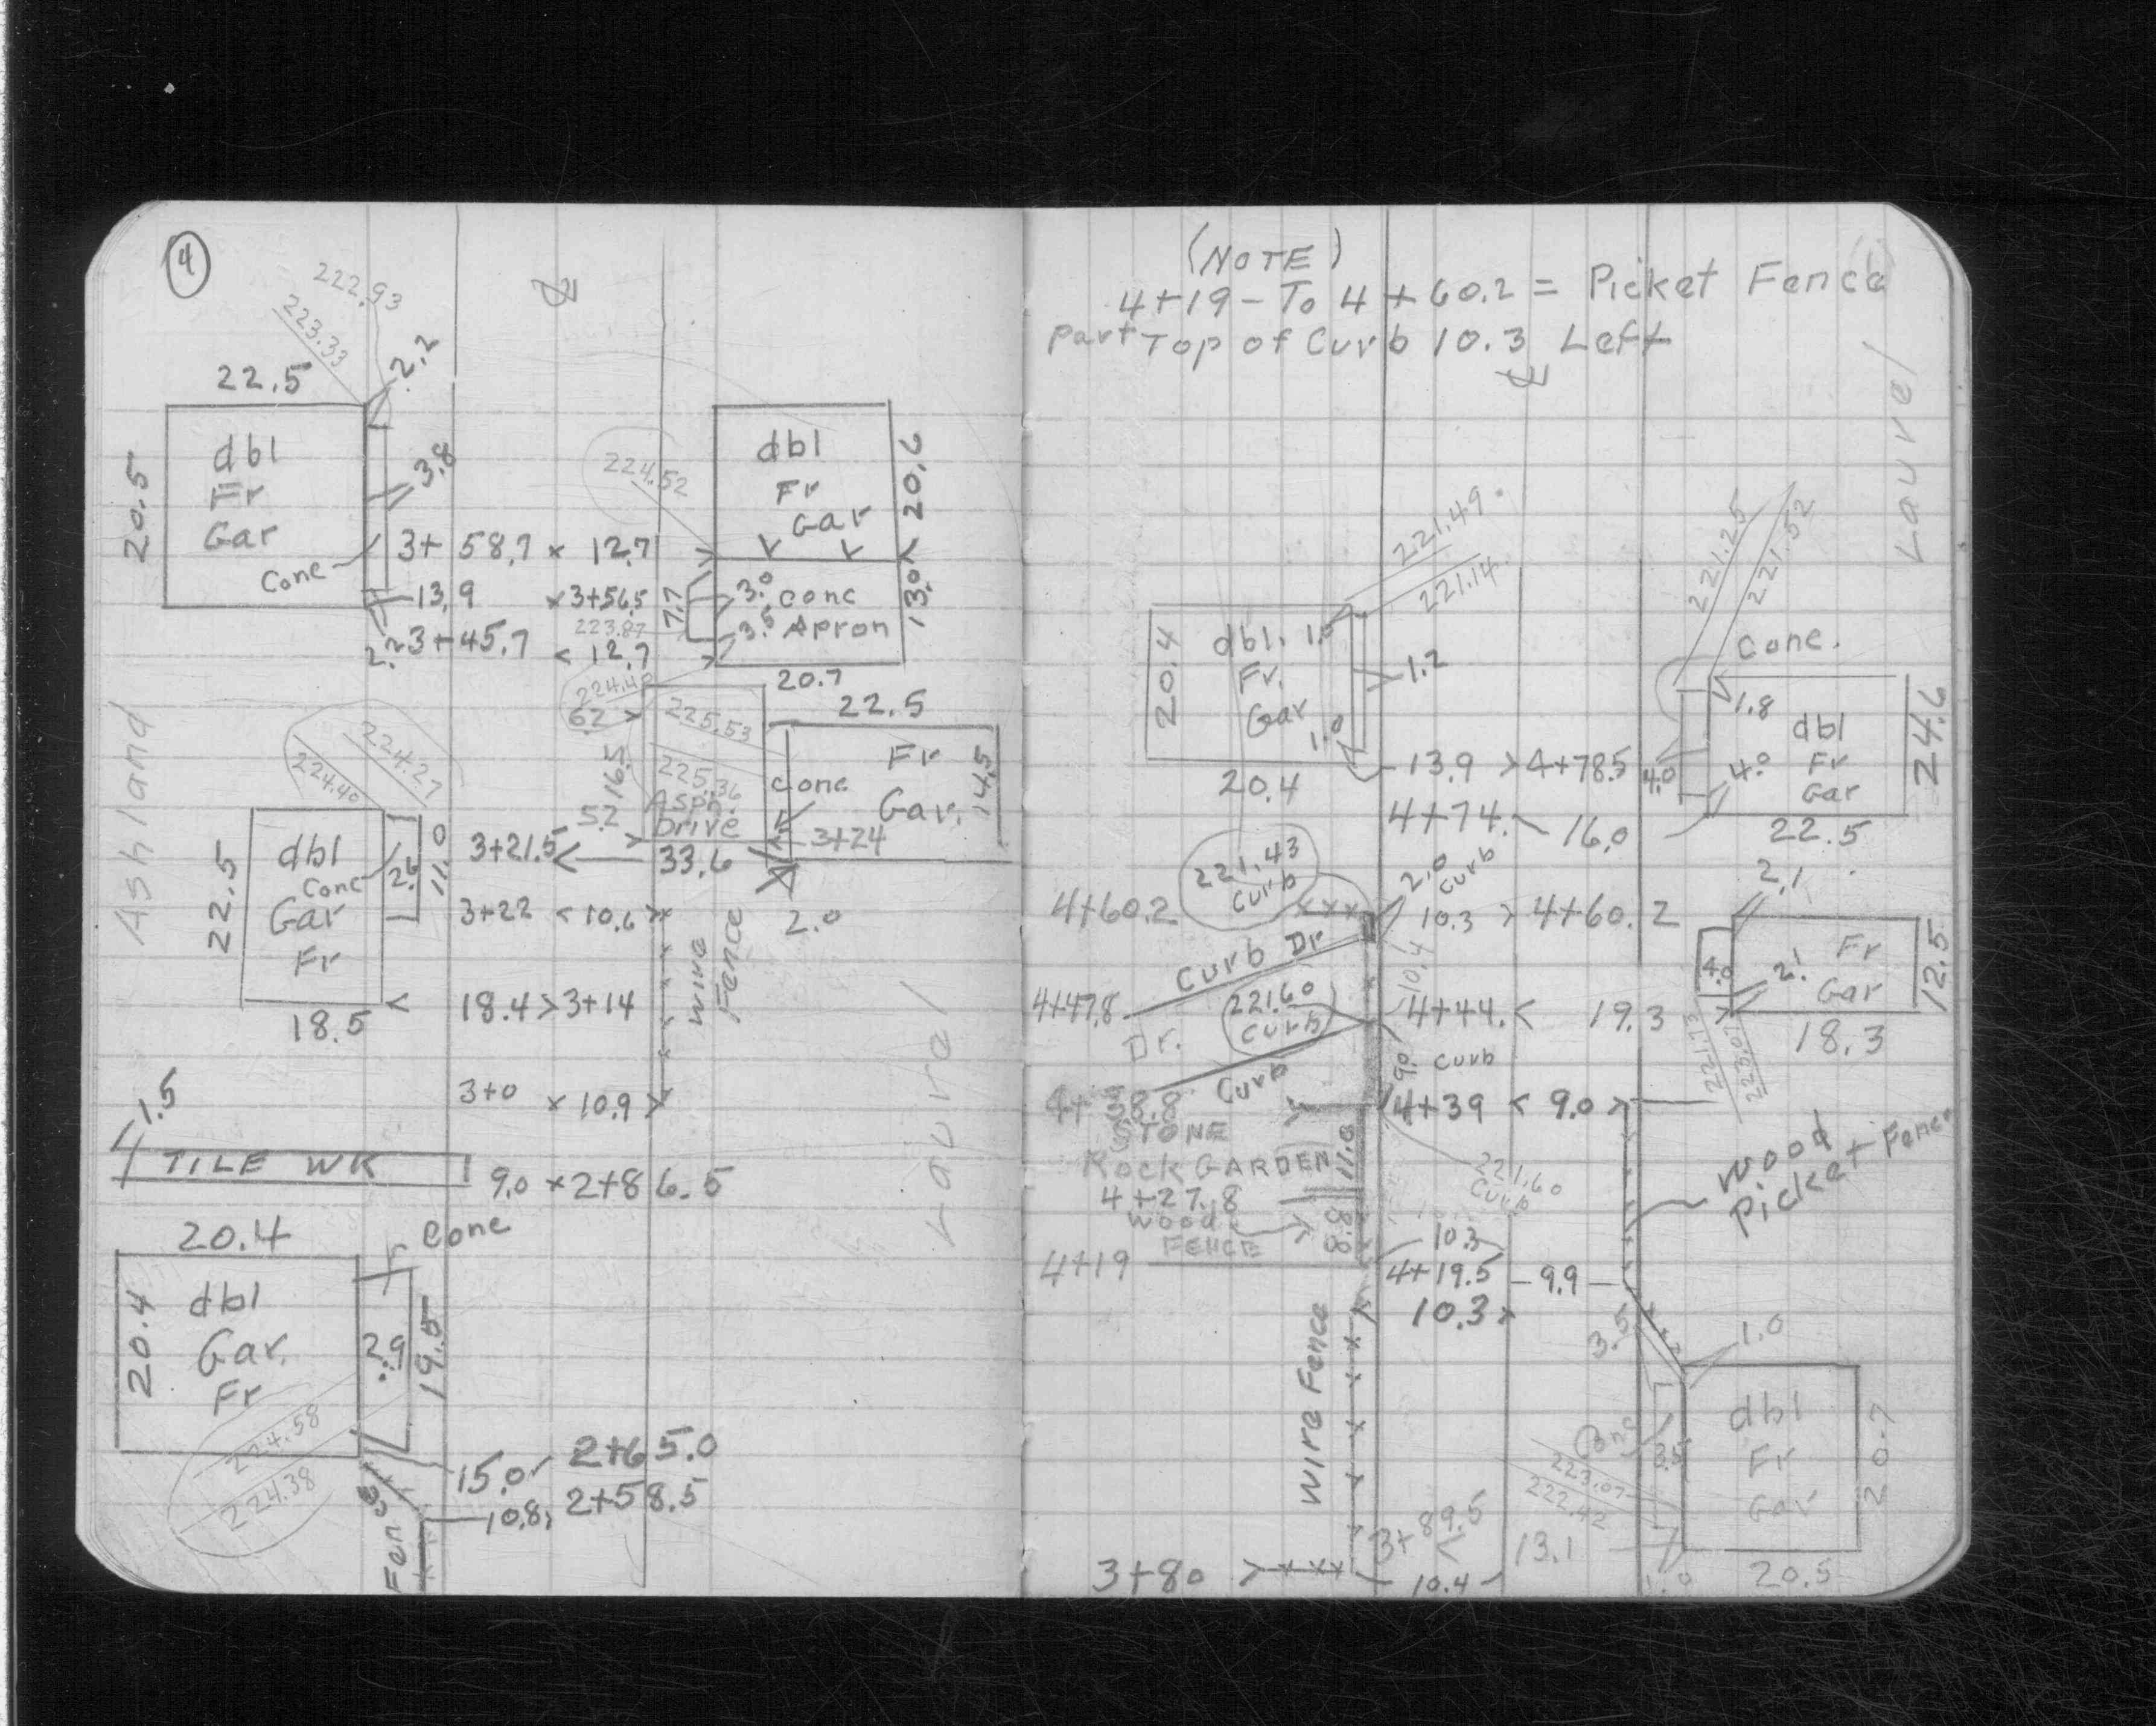 4
222.93
223.33
2.2
22.5
20.5
dbl
Fr
Gar
Conc
3.8
3+58.7 × 12.7
13.9 ×3+56.5
223.87
2.2
3+45.7 < 12.7
224.52
dbl
Fr
Gar
20.6
7.7
3.0 Conc
3.5 Apron
13.0
20.7
6.2
225.53
22.5
16.5
225.36
Asph.
Drive
5.2
Conc
Fr
Gar.
14.5
3+24
Ashland
224.27
224.40
22.5
dbl
Conc
Gar
Fr
2.6
11.0
3+21.5 < 33.6
2.0
3+22 < 10.6 >
wire
Fence
18.5
18.4 > 3+14
Laurel
3+0 × 10.9 >
1.5
TILE WK
9.0 × 2+86.5
20.4
Conc
20.4
dbl
Gar.
Fr
2.9
19.5
224.58
224.38
15.0 2+65.0
10.8, 2+58.5
Fence
(NOTE)
4+19 - To 4+60.2 = Picket Fence
part Top of Curb 10.3 Left
Laurel
221.49
221.14
221.25
221.52
20.4
dbl.
Fr.
Gar
1.2
1.0
20.4
13.9 > 4+78.5
4+74. 16.0
Conc.
1.8
dbl
Fr
Gar
4.0
4.0
24.6
22.5
221.43
Curb
2.0
Curb
4+60.2
10.3 > 4+60.2
2.1
Fr
Gar
4.0
2.1
12.5
18.3
Curb Dr
10.4
4+47.8
221.60
Curb
4+44. < 19.3
Dr.
Curb
9.0 Curb
221.73
223.07
4+38.8
4+39 < 9.0 >
STONE
Rock GARDEN
11.0
221.60
Curb
wood
Picket Fence
4+27.8
wood
FENCE
8.8
10.3
4+19
4+19.5 9.9
10.3
Wire Fence
3.5
1.0
Conc
3.5
dbl
Fr
Gar
20.7
223.07
222.42
3+89.5
13.1
1.0
20.5
3+80
10.4